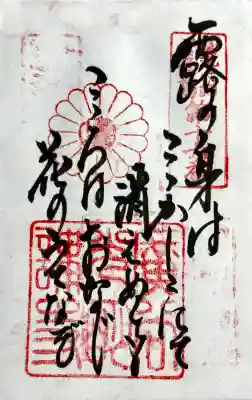 露の身は
こゝかしこにて
消えぬとも
こゝろはおなじ
花のうてなぞ